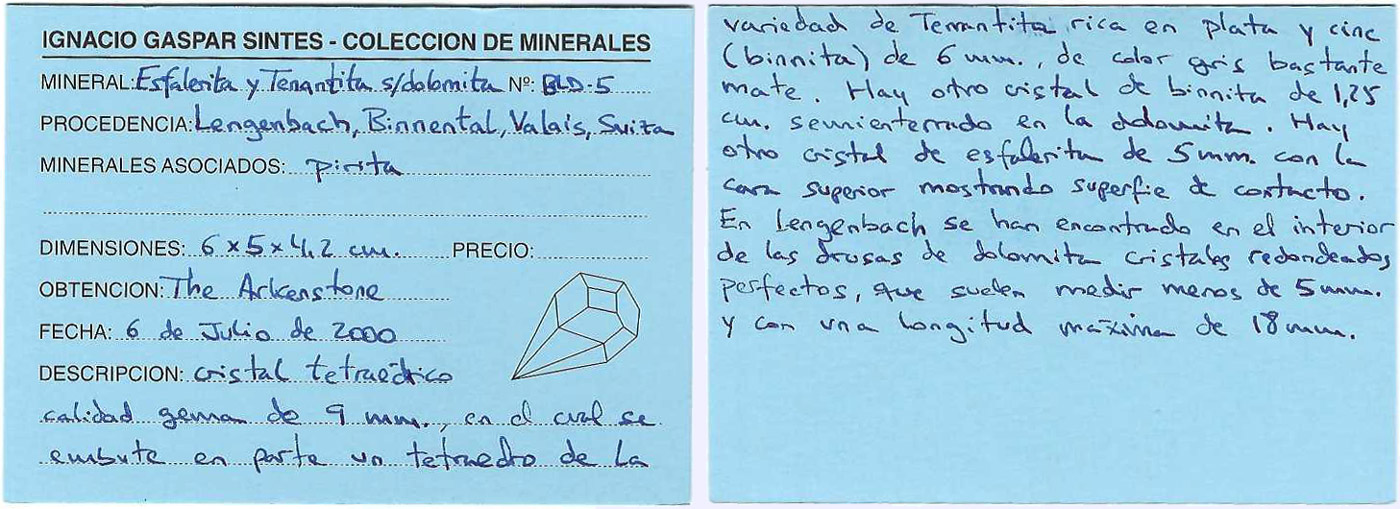 IGNACIO GASPAR SINTES - COLECCION DE MINERALES
MINERAL: Esfalerita y Tenantita s/dolomita Nº: BLD-5
PROCEDENCIA: Lengenbach, Binnental, Valais, Suiza
MINERALES ASOCIADOS: pirita
DIMENSIONES: 6 x 5 x 4,2 cm. PRECIO:
OBTENCION: The Arkenstone
FECHA: 6 de Julio de 2000
DESCRIPCION: cristal tetraédrico
calidad gema de 9 mm., en el cual se
embute en parte un tetraedro de la
variedad de Tenantita rica en plata y cinc
(binnita) de 6 mm., de color gris bastante
mate. Hay otro cristal de binnita de 1,25
cm. semienterrado en la dolomita. Hay
otro cristal de esfalerita de 5 mm. con la
cara superior mostrando superfie de contacto.
En Lengenbach se han encontrado en el interior
de las drusas de dolomita cristales redondeados
perfectos, que suelen medir menos de 5 mm.
y con una longitud máxima de 18 mm.